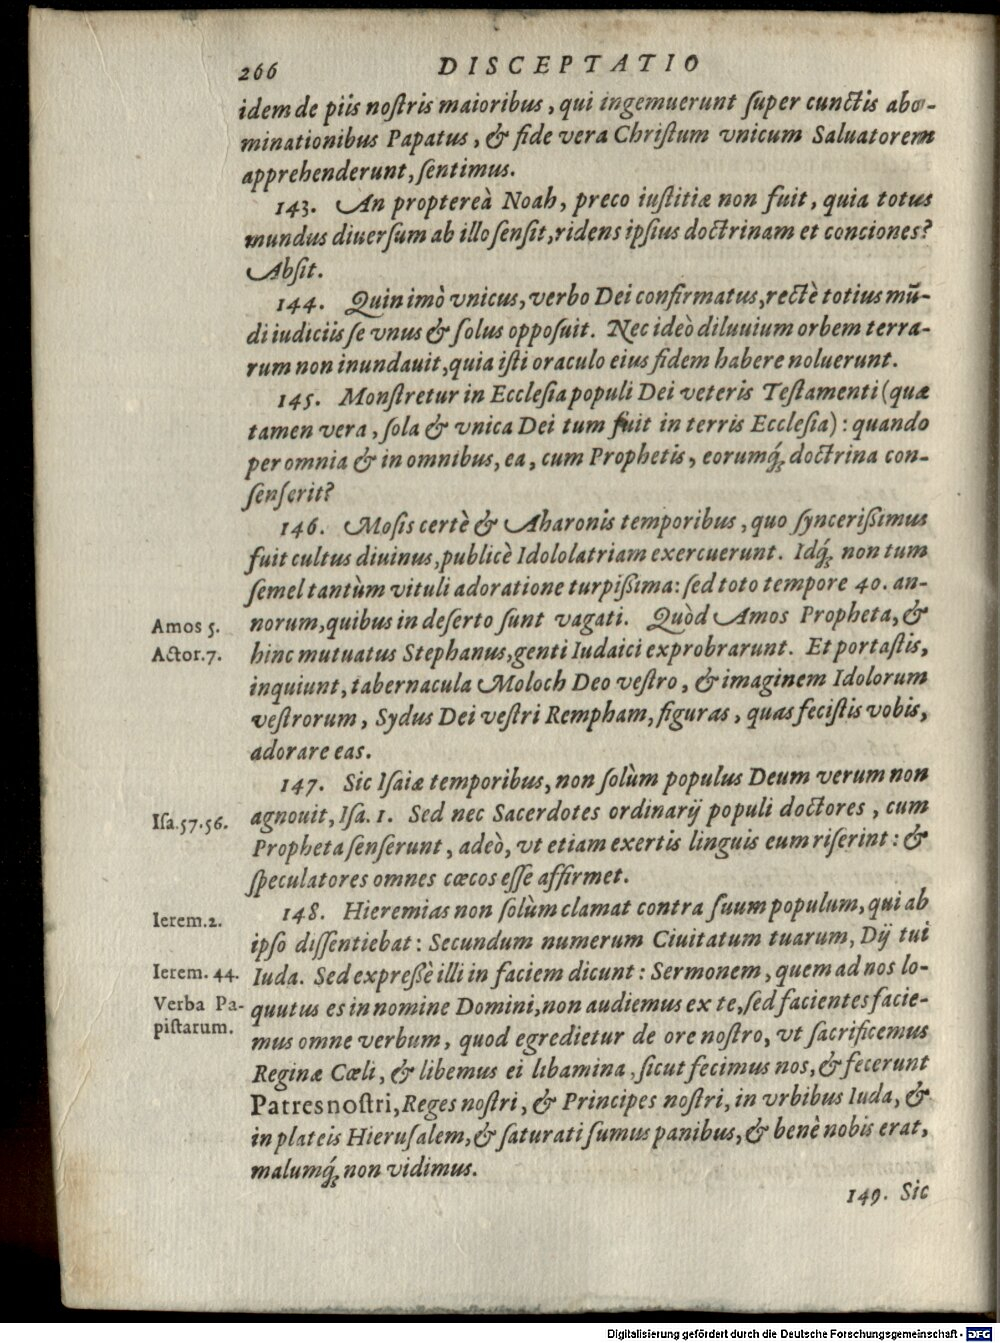 266 DISCEPTATIO
idem de piis noſtris maioribus, qui ingemuerunt ſuper cunctis abo-
minationibus Papatus, & fide vera Chriſtum vnicum Saluatorem
apprehenderunt, ſentimus.
143. An proptereà Noah, preco iuſtitiæ non fuit, quia totus
mundus diuerſum ab illo ſenſit, ridens ipſius doctrinam et conciones?
Abſit.
144. Quin imò vnicus, verbo Dei confirmatus, rectè totius mū-
di iudiciis ſe vnus & ſolus oppoſuit. Nec ideò diluuium orbem terra-
rum non inundauit, quia iſti oraculo eius fidem habere noluerunt.
145. Monſtretur in Eccleſia populi Dei veteris Teſtamenti (quæ
tamen vera, ſola & vnica Dei tum fuit in terris Eccleſia): quando
per omnia & in omnibus, ea, cum Prophetis, eorumq́; doctrina con-
ſenſerit?
146. Moſis certè & Aharonis temporibus, quo ſynceriſsimus
fuit cultus diuinus, publicè Idololatriam exercuerunt. Idq́; non tum
ſemel tantùm vituli adoratione turpiſsima: ſed toto tempore 40. an-
Amos 5. norum, quibus in deſerto ſunt vagati. Quòd Amos Propheta, &
Actor. 7. hinc mutuatus Stephanus, genti Iudaici exprobrarunt. Et portaſtis,
inquiunt, tabernacula Moloch Deo veſtro, & imaginem Idolorum
veſtrorum, Sydus Dei veſtri Rempham, figuras, quas feciſtis vobis,
adorare eas.
147. Sic Iſaiæ temporibus, non ſolùm populus Deum verum non
Iſa. 57. 56. agnouit, Iſa. 1. Sed nec Sacerdotes ordinarij populi doctores, cum
Propheta ſenſerunt, adeò, vt etiam exertis linguis eum riſerint: &
ſpeculatores omnes cœcos eſſe affirmet.
Ierem. 2. 148. Hieremias non ſolùm clamat contra ſuum populum, qui ab
ipſo diſſentiebat: Secundum numerum Ciuitatum tuarum, Dij tui
Ierem. 44. Iuda. Sed expreſsè illi in faciem dicunt: Sermonem, quem ad nos lo-
Verba Pa- quutus es in nomine Domini, non audiemus ex te, ſed facientes facie-
piſtarum. mus omne verbum, quod egredietur de ore noſtro, vt ſacrificemus
Reginæ Cœli, & libemus ei libamina, ſicut fecimus nos, & fecerunt
Patres noſtri, Reges noſtri, & Principes noſtri, in vrbibus Iuda, &
in plateis Hieruſalem, & ſaturati ſumus panibus, & benè nobis erat,
malumq́; non vidimus.
149. Sic
Digitalisierung gefördert durch die Deutsche Forschungsgemeinschaft - DFG